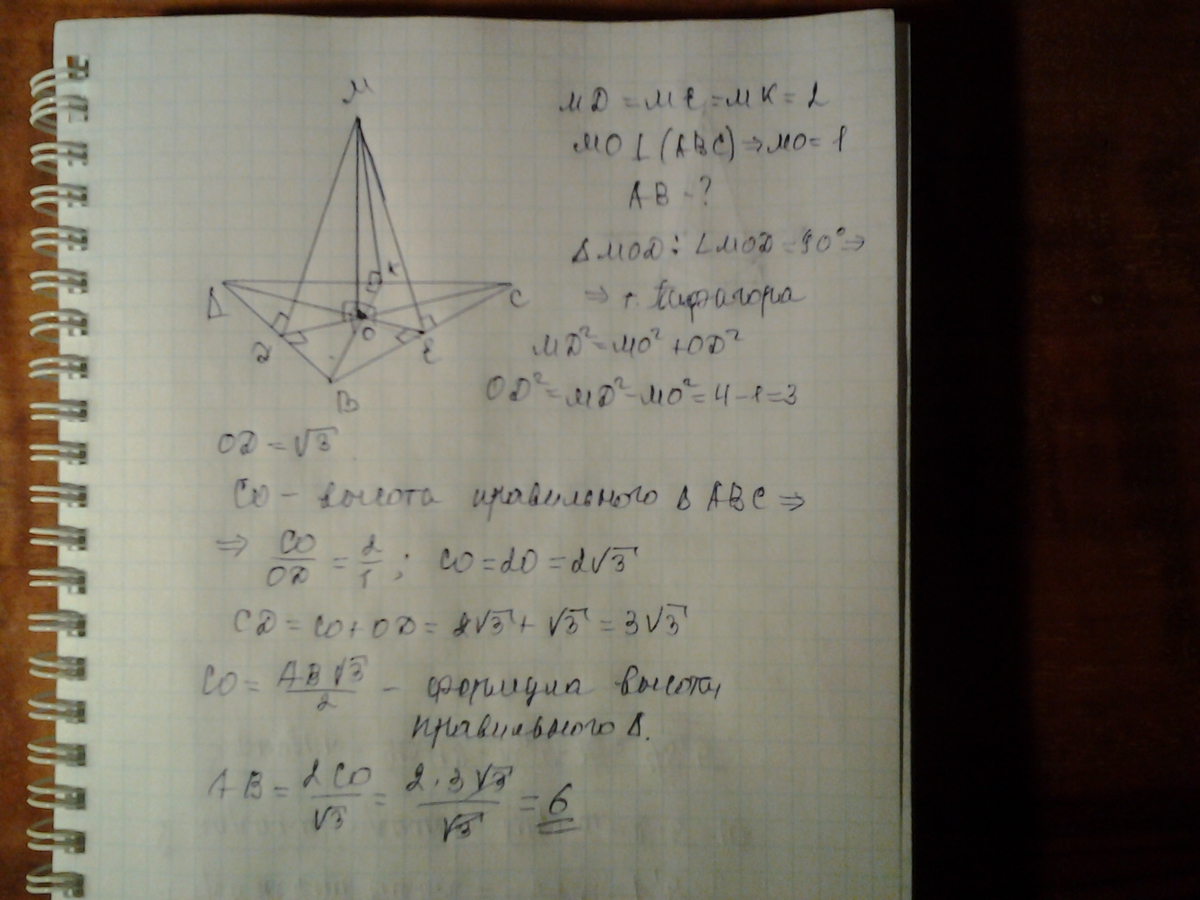 M
A
D
B
E
C
K
O
MD = ME = MK = 2
MO ⊥ (ABC) ⇒ MO = 1
AB - ?
Δ MOD: ∠MOD = 90° ⇒
⇒ т. Пифагора
MD² = MO² + OD²
OD² = MD² - MO² = 4 - 1 = 3
OD = √3
CO - высота правильного Δ ABC ⇒
⇒ CO/OD = 2/1; CO = 2O = 2√3
CD = CO + OD = 2√3 + √3 = 3√3
CO = AB√3/2 - формула высоты
правильного Δ.
AB = 2CO/√3 = 2·3√3/√3 = 6